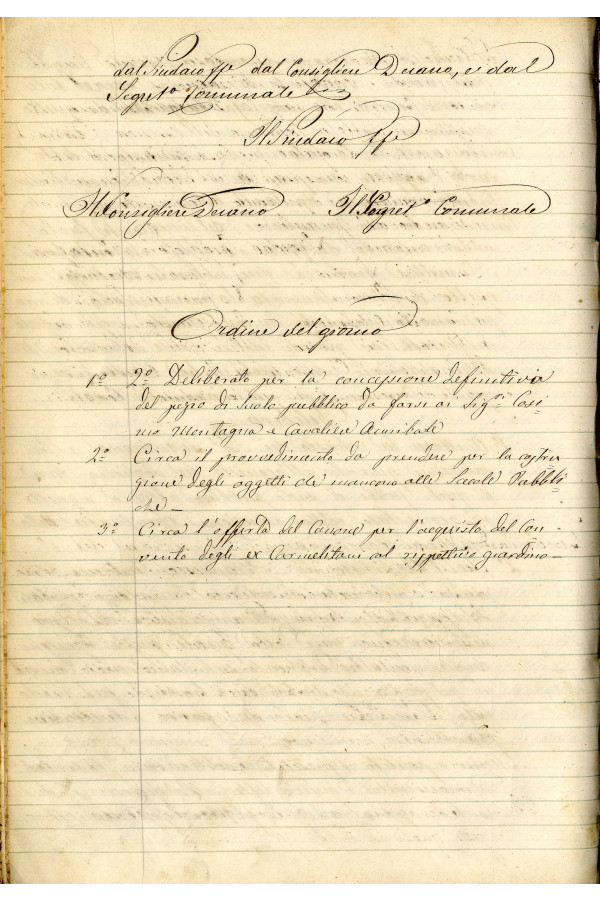 dal Sindaco ff dal Consigliere Decano, e dal
Segret.º Comunale
Il Sindaco ff
Il Consigliere Decano Il Segret.º Comunale
Ordine del giorno
1º 2º Deliberato per la concessione definitiva
del pezzo di suolo pubblico da farsi ai Sig.ri Cosi=
mo Montagna e Cavaliere Annibale
2º Circa il provvedimento da prendere per la costru=
zione degli oggetti che mancono alle Scuole Pubbli=
che —
3º Circa l'offerta del Canone per l'acquisto del Con-
vento degli ex Carmelitani al rispettivo giardino —